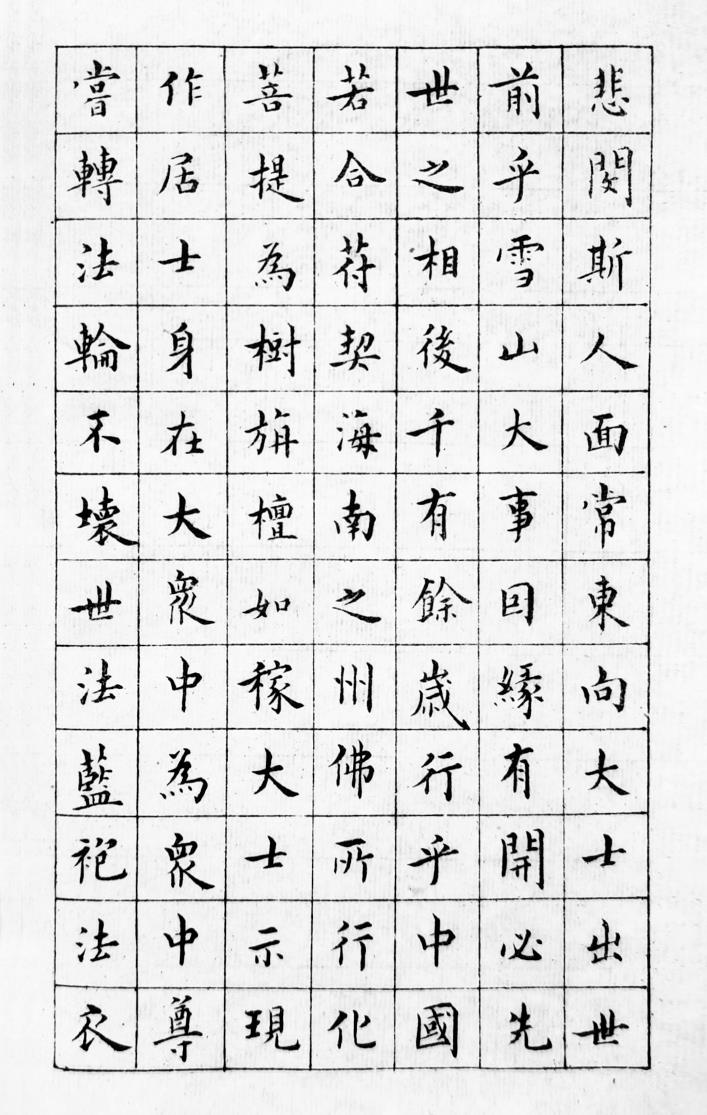 悲閔斯人面常東向大士出世
前乎雪山大事因緣有開必先
世之相後千有餘歲行乎中國
若合苻契海南之州佛所行化
菩提為樹旃檀如稼大士示現
作居士身在大眾中為眾中尊
嘗轉法輪不壞世法藍袍法衣